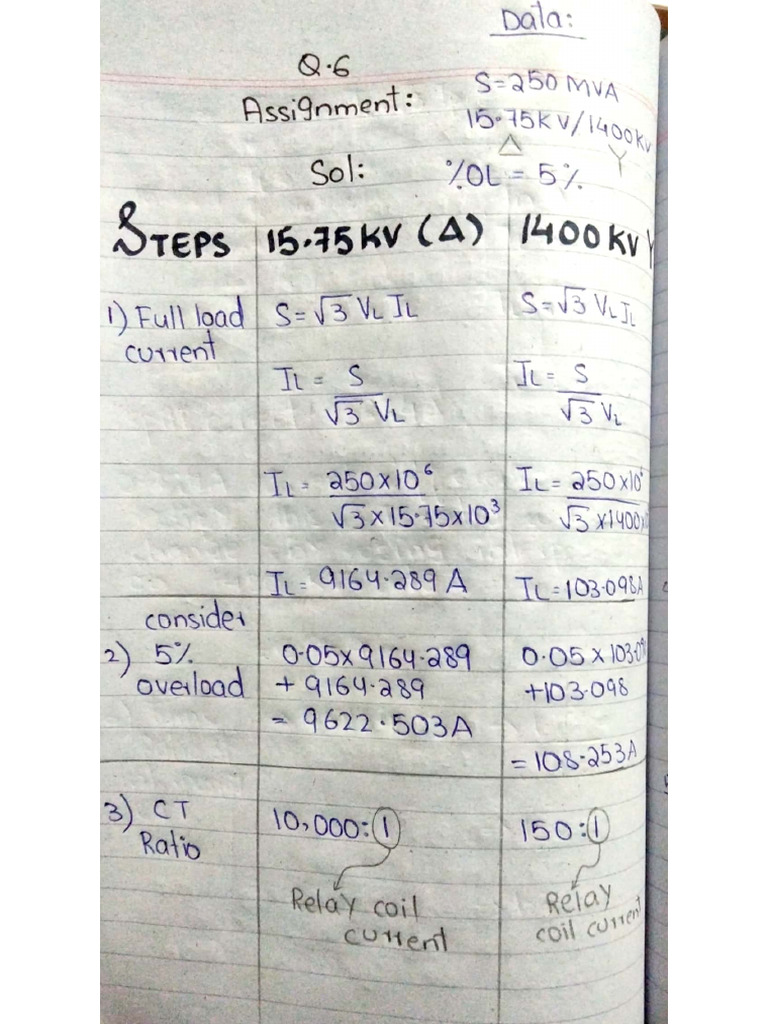 Data:
Q.6
Assignment:
S=250 MVA
15.75KV/1400KV
Δ Y
Sol:
%OL = 5%
STEPS 15.75KV (Δ) 1400KV Y
1) Full load current
S=√3 VL IL
IL = S
√3 VL
IL = 250×10⁶
√3×15.75×10³
IL = 9164.289 A
S=√3 VL IL
IL = S
√3 VL
IL = 250×10
√3×1400×
IL=103.098A
consider
2) 5%
overload
0.05×9164.289
+ 9164.289
= 9622.503A
0.05×103.09
+103.098
=108.253A
3) CT
Ratio
10,000:1
Relay coil
current
150:1
Relay
coil current